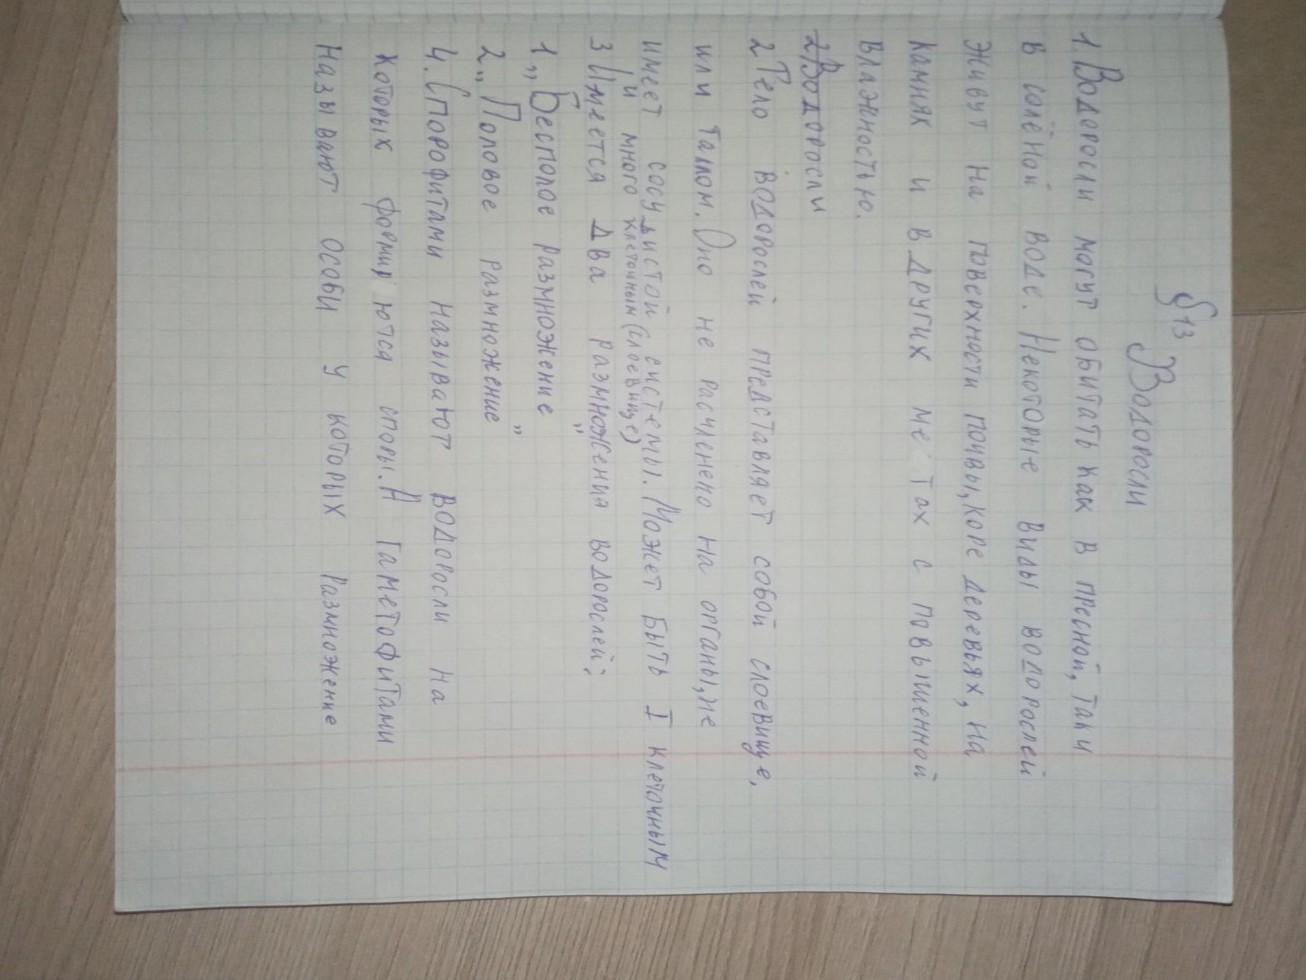 § 13
Водоросли
1. Водоросли могут обитать как в пресной, так и
в солёной воде. Некоторые виды водорослей
живут на поверхности почвы, коре деревьях, на
камнях и в других ме тах с повышенной
влажностью.
2 Водоросли
2 Тело водорослей представляет собой слоевище,
или талом. Оно не расчленено на органы, не
имеет сосудистой системы. Может быть I клеточным
и много клеточным (слоевище)
3 Имеется два размножения водорослей;
1 „ Бесполое размножение "
2 „ Половое размножение "
4. Спорофитами называют водоросли на
которых формируются споры. А гаметофитами
называют особи у которых размножение